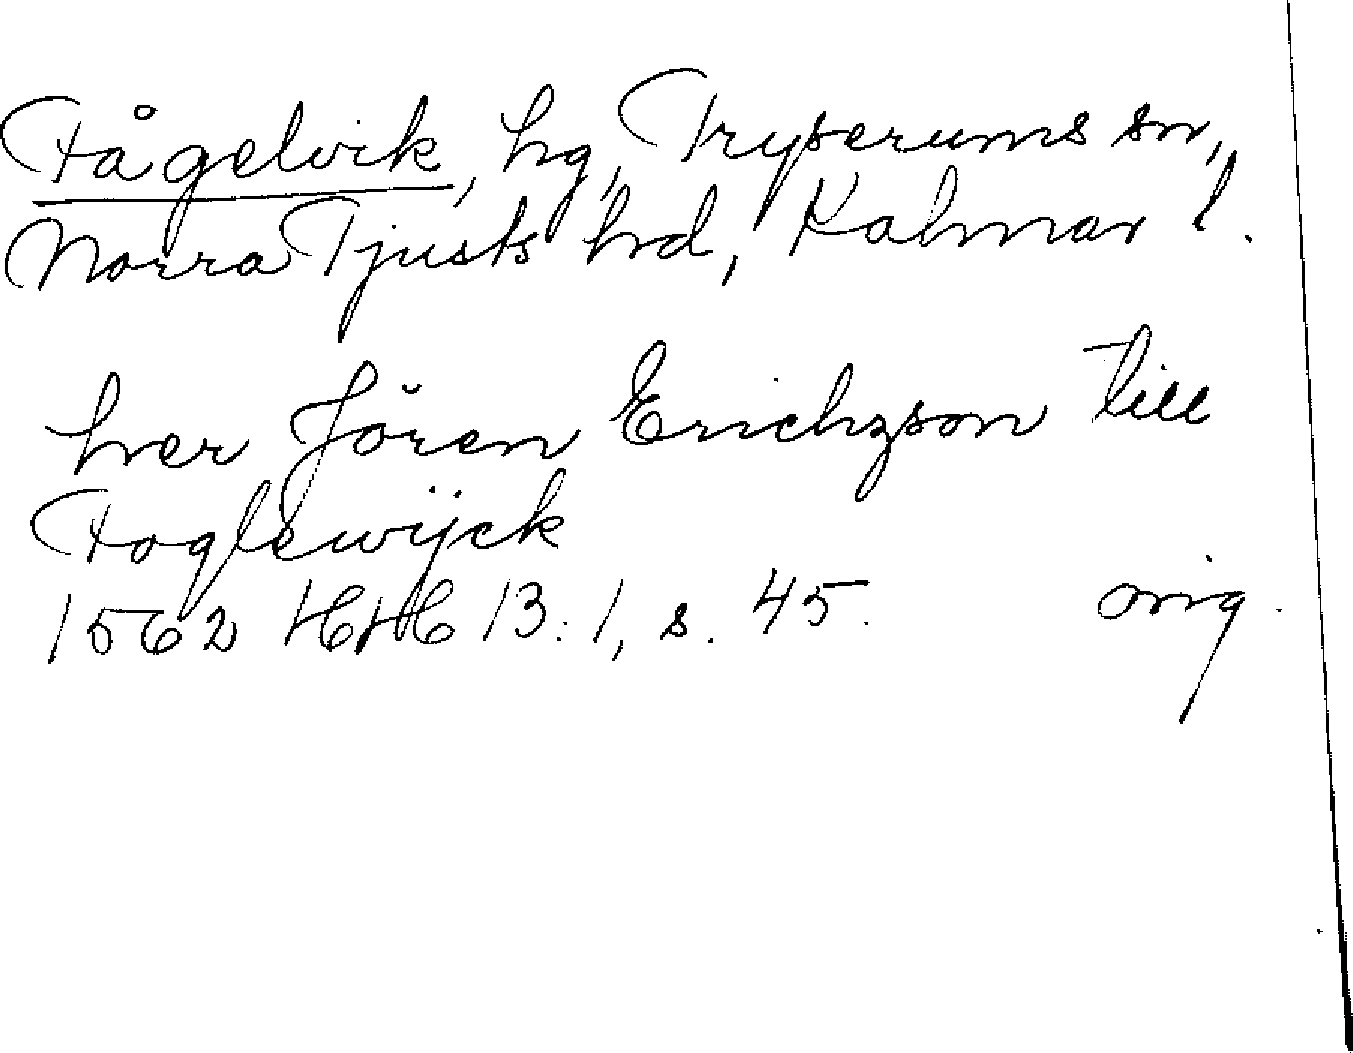 Fågelvik, hg, Tryserums sn,
Norra Tjusts hd, Kalmar l.
her Jören Erichzson till
Foglewijck
1562 HH 13:1, s. 45. orig.